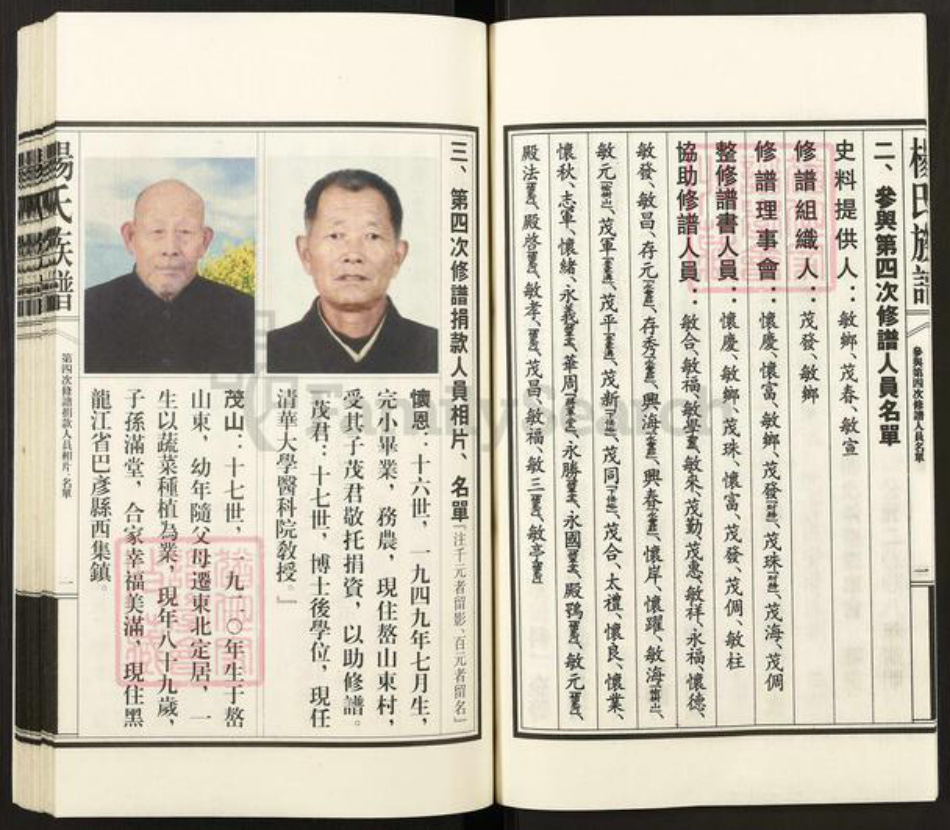 楊氏族譜
參與第四次修譜人員名單
一
二、參與第四次修譜人員名單
史料提供人：敏鄉、茂春、敏宣
修譜組織人：茂發、敏鄉
修譜理事會：懷慶、懷富、敏鄉、茂發、茂珠、茂海、茂倜
整修譜書人員：懷慶、敏鄉、茂珠、懷富、茂發、茂倜、敏柱
協助修譜人員：敏合、敏福、敏學、敏來、茂勤、茂惠、敏祥、永福、懷德、
敏發、敏昌、存元、存秀、興海、興春、懷岸、懷躍、敏海、
敏元、茂軍、茂平、茂新、茂同、茂合、太禮、懷良、懷業、
懷秋、志軍、懷緒、永義、華周、永勝、永國、殿鶚、敏元、
殿法、殿啓、敏孝、茂昌、敏福、敏三、敏亭
三、第四次修譜捐款人員相片、名單「注千元者留影、百元者留名」
懷恩：十六世，一九四九年七月生，
完小畢業，務農，現住嶅山東村，
受其子茂君敬托捐資，以助修譜。
「茂君：十七世，博士後學位，現任
清華大學醫科院教授。」
茂山：十七世，一九一〇年生于嶅
山東，幼年隨父母遷東北定居，一
生以蔬菜種植為業，現年八十九歲，
子孫滿堂，合家幸福美滿，現住黑
龍江省巴彥縣西集鎮。
楊氏族譜
第四次修譜捐款人員相片、名單
一
FamilySearch